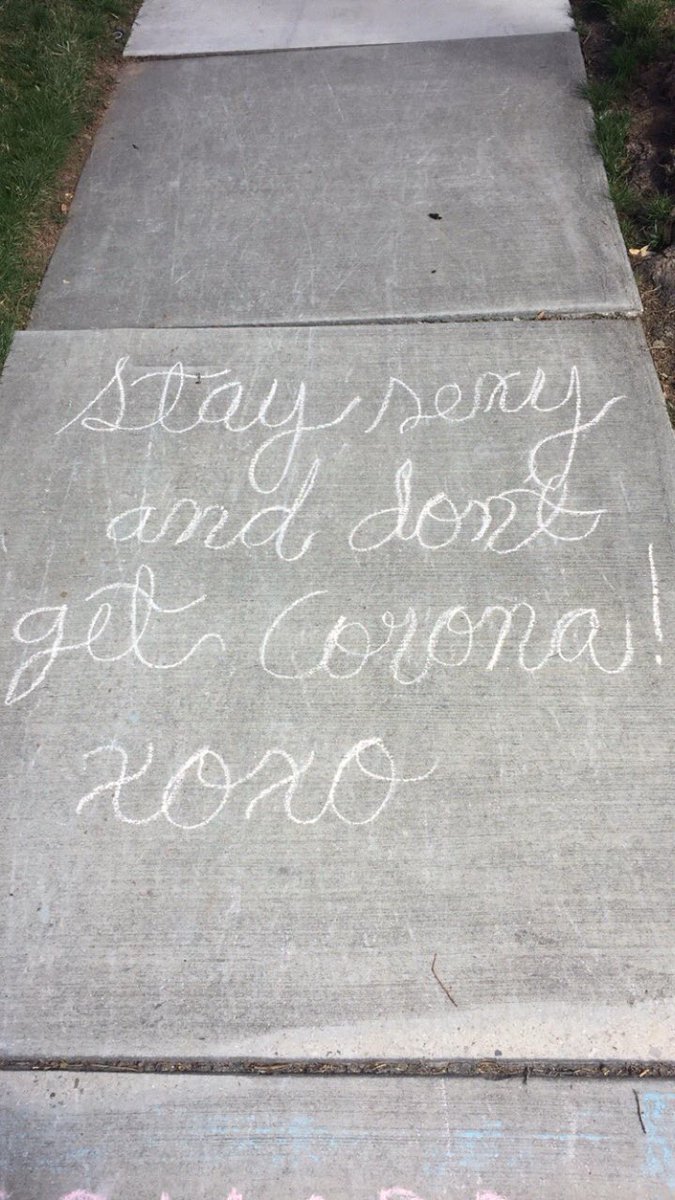 stay sexy
and don't
get Corona!
xoxo